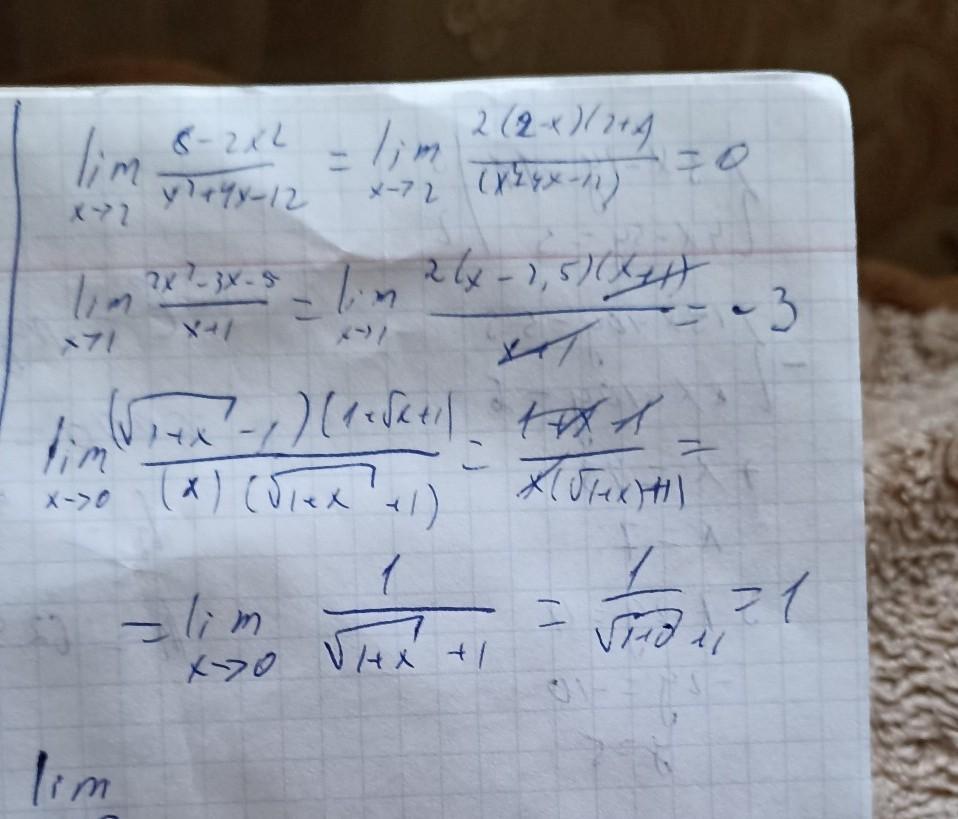 lim x→2 (8-2x²)/(x²+4x-12) = lim x→2 2(2-x)(2+x)/(x²+4x-12) = 0
lim x→1 (2x²-3x-5)/(x+1) = lim x→1 2(x-2,5)(x+1)/(x+1) = -3
lim x→0 (√(1+x) -1)(1+√x+1)/((x)(√(1+x) +1)) = (1+x-1)/(x(√1+x)+1) =
= lim x→0 1/(√(1+x) +1) = 1/(√(1+0) +1) = 1
lim